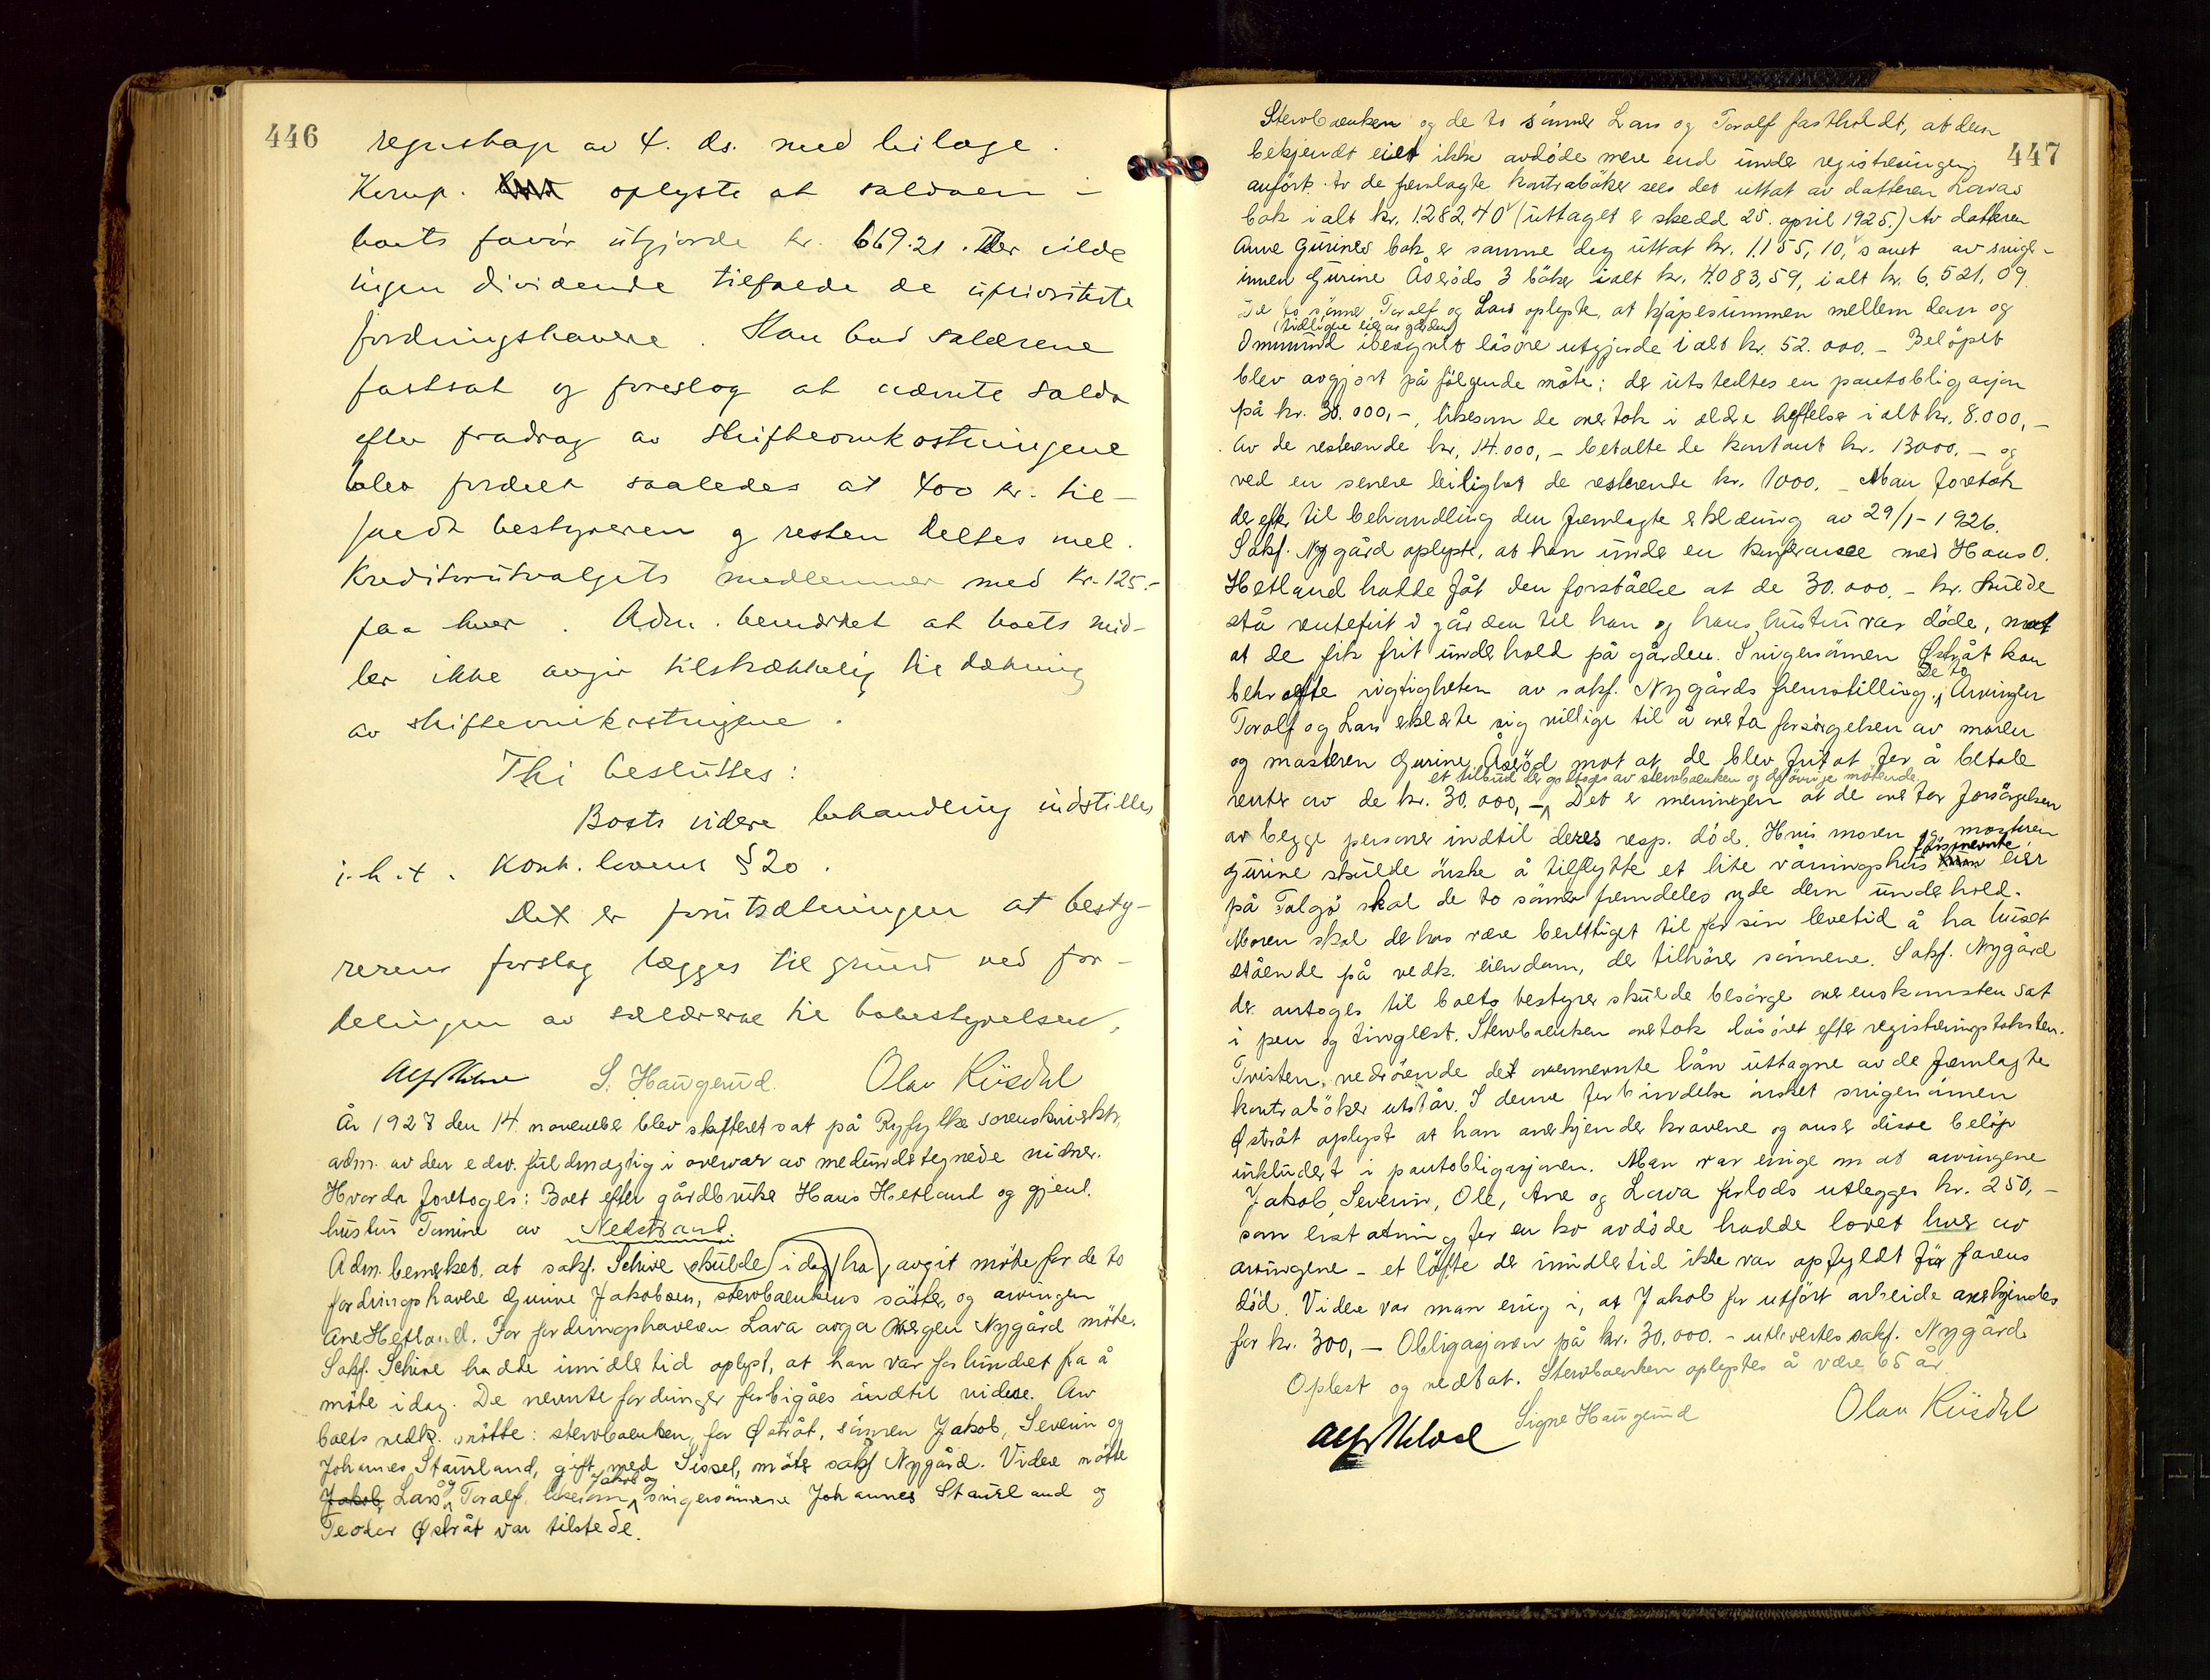 446
regnskap av 4. ds. med bilage.
Komp. oplyste at saldoen i
boets favör utgjorde kr. 669.21. Der vilde
ingen dividende tilfalde de upriorterte
fordringshavere. Han bad salærene
fastsat og foreslog at nævnte saldo
efter fradrag av skifteomkostningene
blev fordelt saaledes at 400 kr. til-
faldt bestyreren og resten deltes mel.
Kreditorutvalgets medlemmer med kr. 125.-
paa hver. Adm. bemerket at boets mid-
ler ikke avgir tilstrækkelig til dækning
av skifteomkostningene.
Thi besluttes:
Boets videre behandling indstilles
i.h.t. konk. lovens §20.
Det er forutsætningen at besty-
rerens forslag lægges til grund ved for-
delingen av salærerne til bobestyrelsen.
S. Haugerud. Olav Risdal
År 1927 den 14. november blev skifteret sat på Ryfylke sorenskriverktr.
adm. av den edsv. fuldmægtig i overvær av medundertegnede vidner.
Hvorda foretoges: Boet efter gårdbruker Hans Hetland og gjenl.
hustru Tomine av Nedstrand.
Adm. bemerket, at sakf. Schive skulde idag ha avgit möte for de to
fordringshavere Gurine Jakobsen, stervboenkens söster, og arvingen
Ane Hetland. For fordringshaveren Lava avga overgen Nygård möte.
Sakf. Schive hadde imidlertid oplyst, at han var forhindret fra å
möte idag. De nevnte fordringer forbigåes indtil videre. Av
boets vedk. mötte: stervboenken, for Østråt, sönnen Jakob, Severin og
Johannes Staurland, gift med Sissel, möter sakf. Nygård. Videre mötte
Jakob, Lars og Toralf, likesom Jakob og svigersönnene Johannes Staurland og
Teodor Østråt var tilstede.
447
Stervboenken og de to sönner Lars og Toralf fastholdt, at dem
bekjendt eiet ikke avdöde mere end under registreringen
anfört. Av de fremlagte kontraböker sees det uttat av datteren Lavas
bok ialt kr. 1282,40 (uttaget er skedd 25. april 1925.) Av datteren
Ane Gurines bok er samme dag uttat kr. 1.155,10, samt av sviger-
innen Gurine Åseröds 3 böker ialt kr. 4083,59, ialt kr. 6.521,09.
De to sönner Toralf og Lars oplyste, at kjöpesummen mellem dem og
(tidligere eier av gården)
Ommund iberegnet lösöre utgjorde ialt kr. 52.000.- Belöpet
blev avgjort på fölgende måte: der utstedtes en pantobligasjon
på kr. 30.000,-, likesom de overtok i eldre heftelser ialt kr. 8.000,-
Av de resterende kr. 14.000,- betalte de kontant kr. 13000.- og
ved en senere leilighet de resterende kr. 1000.- Man foretok
derefter til behandling den fremlagte erklæring av 29/1-1926.
Sakf. Nygård oplyste, at han under en konferanse med Hans O.
Hetland hadde fåt den forståelse at de 30.000.- kr. skulde
stå rentefrit i gården til han og hans hustru var döde, mot
at de fik frit underhold på gården. Svigersönnen Østråt kan
bekræfte rigtigheten av sakf. Nygårds fremstilling. De to Arvinger
Toralf og Lars erklærte sig villige til å overta forsörgelsen av moren
og mosteren Gurine Åseröd mot at de blev fritat for å betale
et tilbud der godtoges av stervboenken og de övrige mötende.
renter av de kr. 30.000,- Det er meningen at de overtar forsörgelsen
av begge personer indtil deres resp. död. Hvis moren og mosteren
Gurine skulde önske å tilflytte et lite våningshus förstnevnte eier
på Talgö skal de to sönner fremdeles yde dem underhold.
Moren skal derhos være berettiget til for sin levetid å ha huset
stående på vedk. eiendom, der tilhörer sönnene. Sakf. Nygård
der antoges til boets bestyrer skulde besörge overenskomsten sat
i pen og tinglest. Stervboenken overtok lösöret efter registreringstaksten.
Tvisten vedrörende det ovennevnte lån uttagne av de fremlagte
kontraböker utstår. I denne forbindelse önsket svigersönnen
Østråt oplyst at han anerkjender kravene og anser disse belöp
inkludert i pantobligasjonen. Man var enige om at arvingene
Jakob, Severin, Ole, Ane og Lava forlods utlegges kr. 250,-
som erstatning for en ko avdöde hadde lovet hver av
arvingene - et löfte der imidlertid ikke var opfyldt för farens
död. Videre var man enig i, at Jakob for utfört arbeide anerkjendes
for kr. 300,- Obligasjonen på kr. 30.000.- utlevertes sakf. Nygård.
Oplest og vedtat. Stervboenken oplystes å være 65 år
Signe Haugerud Olav Risdal